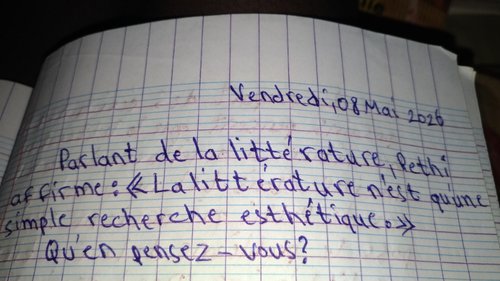 Vendredi, 08 Mai 2026
Parlant de la littérature, Pethi
affirme : « La littérature n'est qu'une
simple recherche esthétique. »
Qu'en pensez-vous ?